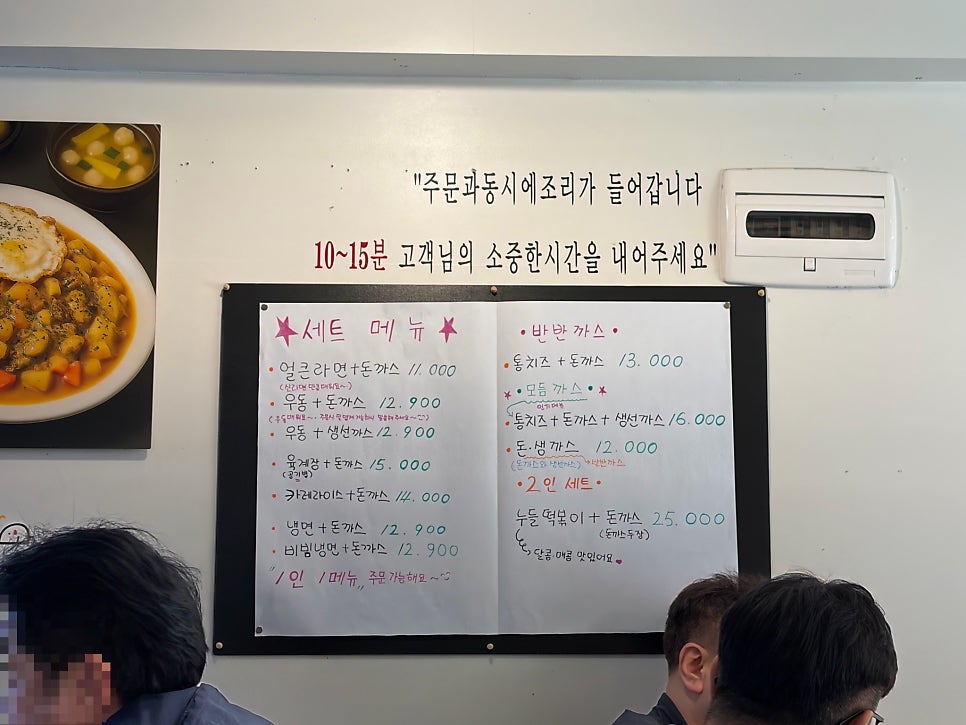 "주문과동시에조리가 들어갑니다
10~15분 고객님의 소중한시간을 내어주세요"
세트 메뉴
얼큰라면+돈까스 11.000
우동+돈까스 12.900
우동+생선까스 12.900
육계장+돈까스 15.000
(공기밥)
카레라이스+돈까스 14.000
냉면+돈까스 12.900
비빔냉면+돈까스 12.900
"1인 1메뉴" 주문가능해요~
•반반까스•
통치즈+돈까스 13.000
•모듬까스•
인기메뉴
통치즈+돈까스+생선까스 16.000
돈·생까스 12.000
(돈까스와 생선까스) 반반까스
•2인 세트•
누들떡볶이+돈까스 25.000
(돈까스두장)
달콤·매콤 맛있어요